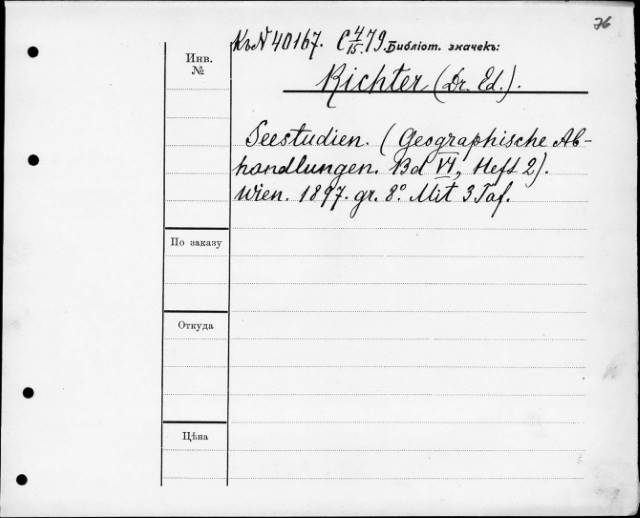 76
Къ № 40167. С 4/15. 79. Библіот. значекъ:
Инв.
№
Richter (Dr. Ed.).
Seestudien. (Geographische Ab-
handlungen. Bd VI, Heft 2).
Wien. 1897. gr. 8°. Mit 3 Taf.
По заказу
Откуда
Цѣна